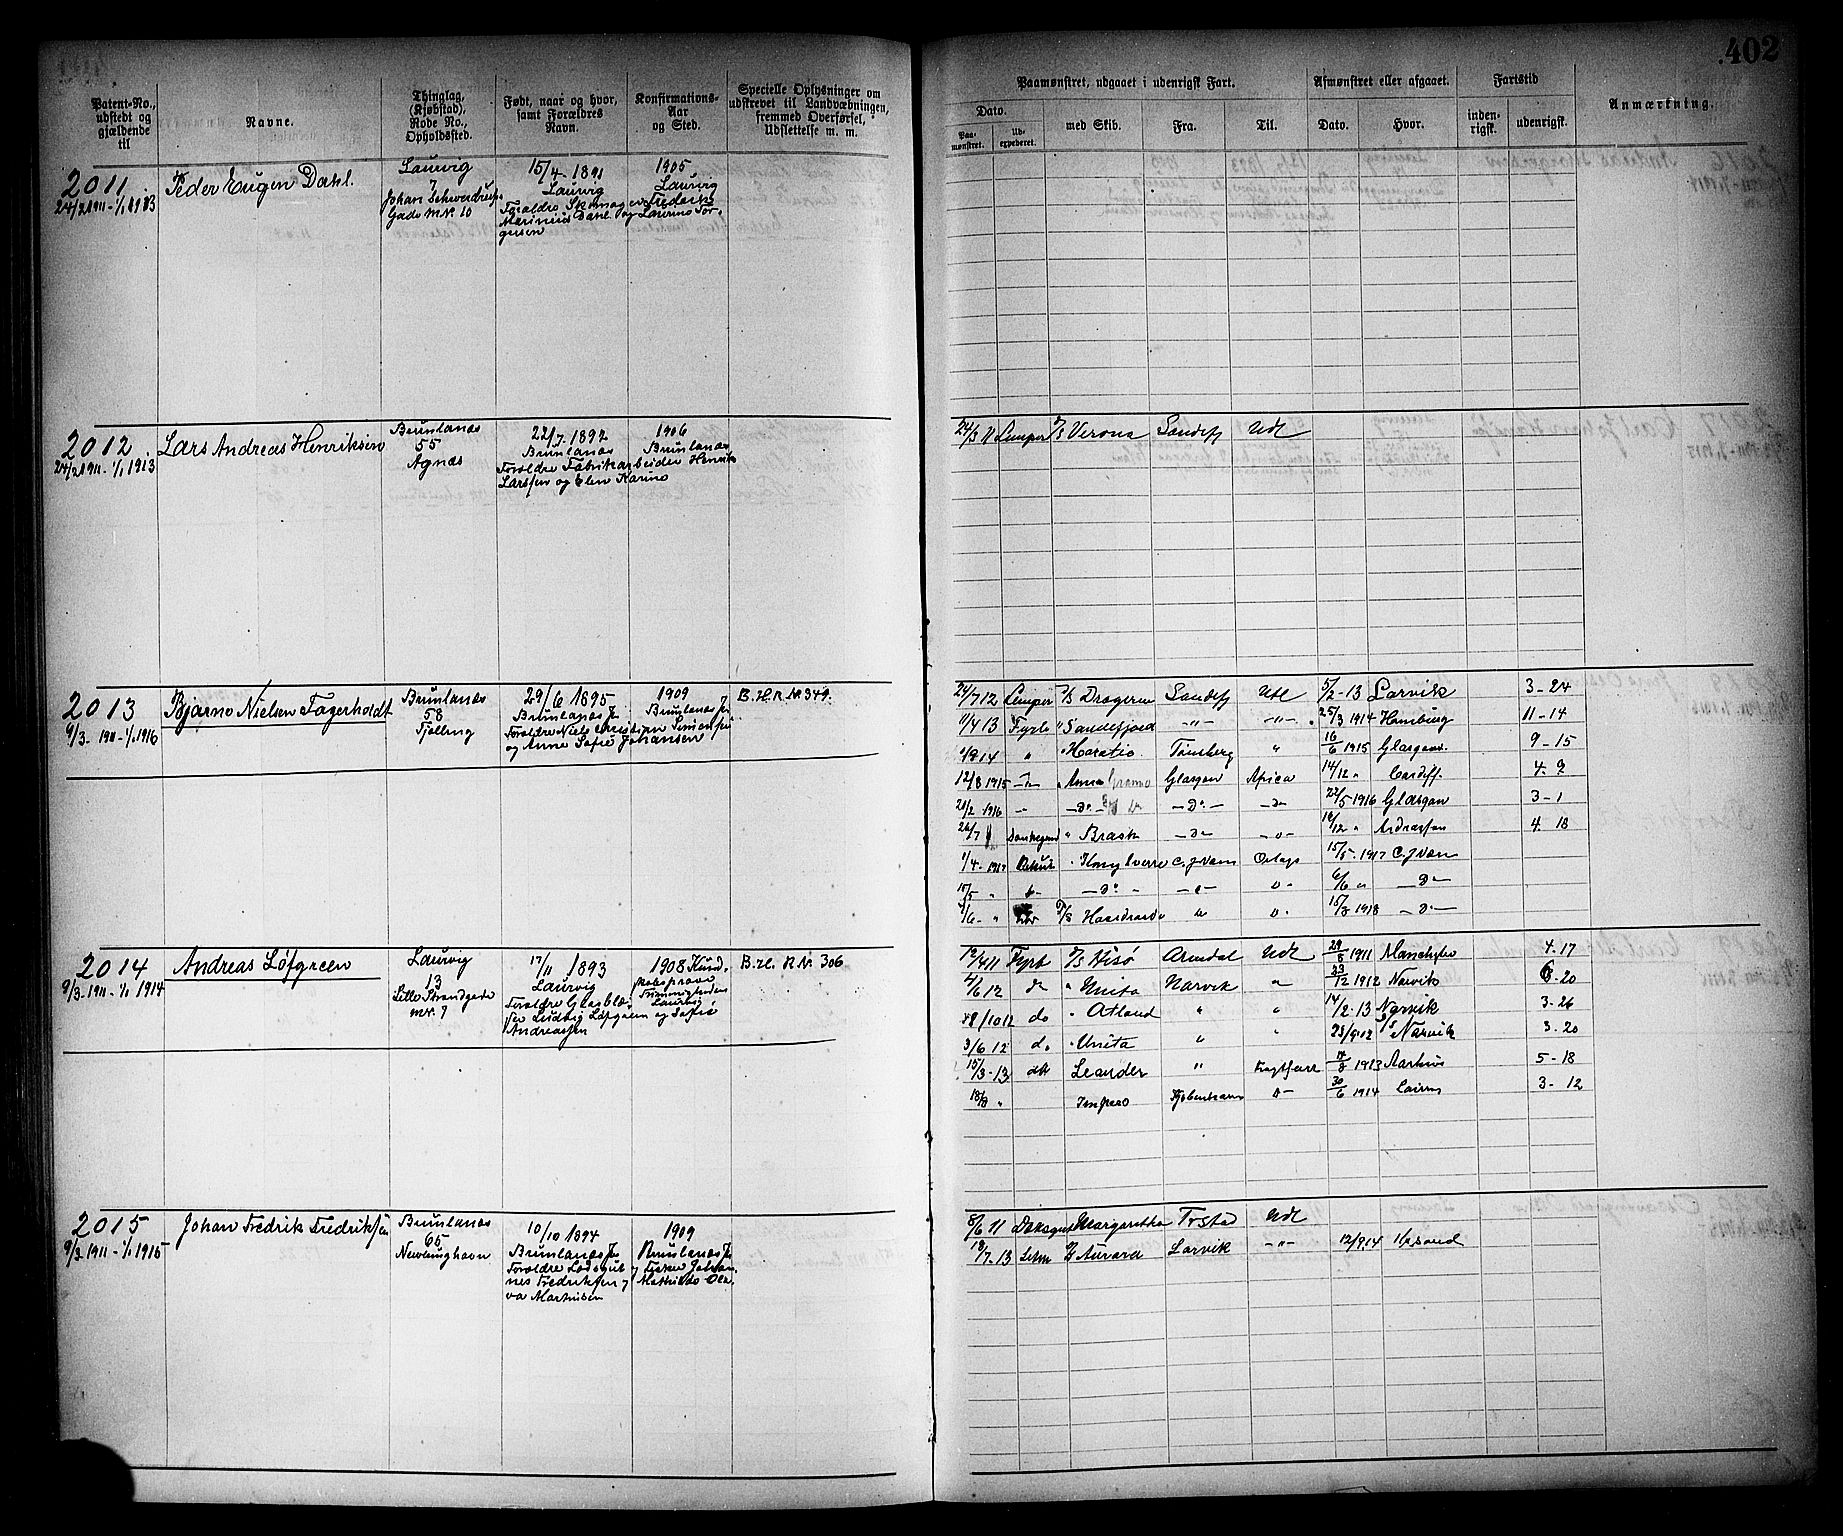 402
Patent-No., udstedt og gjældende til
Navne.
Thinglag, (Kjøbstad), Rode No., Opholdssted.
Født, naar og hvor, samt Forældres Navn.
Konfirmations-Aar og Sted.
Specielle Oplysninger om udskrevet til Landvæbningen, fremmed Overførsel, Udslettelse m. m.
Paamønstret, udgaaet i udenrigsk Fart.
Afmønstret eller afgaaet.
Fartstid
Anmærkning.
Dato.
Paamønstret.
Udexpederet.
med Skib.
Fra.
Til.
Dato.
Hvor.
indenrigsk.
udenrigsk.
2011
24/2 1911 - 1/1 1913
Peder Eugen Dahl.
Laurvig
Johan Schwerdrups
Gade nr. 10
15/4 - 1891
Laurvig
1905
Laurvig
Forældre Skomager Frederik
Marinius Dahl og Laurine Tor-
gersen
2012
24/2 1911 - 1/1 1913
Lars Andreas Henriksen
Brunlanæs
55
Agnæs
22/7 - 1892
Brunlanæs
1906
Brunlanæs
Forældre Fabrikarbeider Henrik
Larssen og Elen Karine
24/3 11 Lemper D/S Verona Sandefj Udl
2013
9/3 - 1911 - 1/1 1916
Bjarne Nielsen Fagerholdt
Brunlanæs
58
Tjølling
29/6 1895
Brunlanæs
1909
Brunlanæs
B.H.R No 349.
Forældre Niels Christian Simonsen
og Anne Sofie Johansen
24/7 12 Lemper D/S Drageren Sandefj Udl 5/2 - 13 Larvik 3 - 24
11/4 13 Fyrb " Sandefjord -"- -"- 25/3 1914 Hamburg 11 - 14
1/8 14 " " Horatio Tønsberg " 16/6 1915 Glasgow 9 - 15
12/8 1915 " Anna Glasgow Africa 14/12 " Cardiff. 4 - 9
21/2 1916 - - Do - - Do - - Do - 22/5 1916 Glasgow 3 - 1
26/7 Donkeymd " Brask - Do - - o - 18/12 " Ardrossan 4 - 18
1/4 - 1917 15/5 - 1917
15/5 " - Do - 6/6 " - Do -
1/6 - " 15/3 1918 - Do -
2014
9/3 - 1911 - 1/1 1914
Andreas Løfgreen
Laurvig
13
Lille Strandgade
nr. 7
17/11 1893
Laurvig
1908 Kund-
skabsprøve
Frimenigheden
Laurvig
B.H. R Nr. 306
Forældre Glasblæ-
ser Ludvig Løfgreen og Sofie
Andreassen
12/4 11 Fyrb D/S Kisø Arendal Udl 29/8 1911 Manchester 4 - 17
4/6 12 do " Unita Narvik " 23/12 1912 Narvik 6 - 20
/10 12 do " Atland " " 14/2 - 13 Narvik 3 - 26
3/6 12 do " Unita " " 23/9 12 Narvik 3 - 20
15/3 - 13 Leander " Fragtfart 1913 Aarhus 5 - 18
18/8 " Impero Kjøbenhavn D - 30/6 1914 3 - 12
2015
9/3 1911 - 1/1 1915
Johan Fredrik Fredriksen
Brunlanæs
65
Nevlunghavn
10/10 1894
Brunlanæs
1909
Brunlanæs
Forældre Lodsgut og Fisker Johan-
nes Fredriksen og Mathilde Ole-
va Martinsen
8/6 11 Margaretha Udl
18/7 - 13 Letm D/S Aurora Larvik -"- 12/9 14